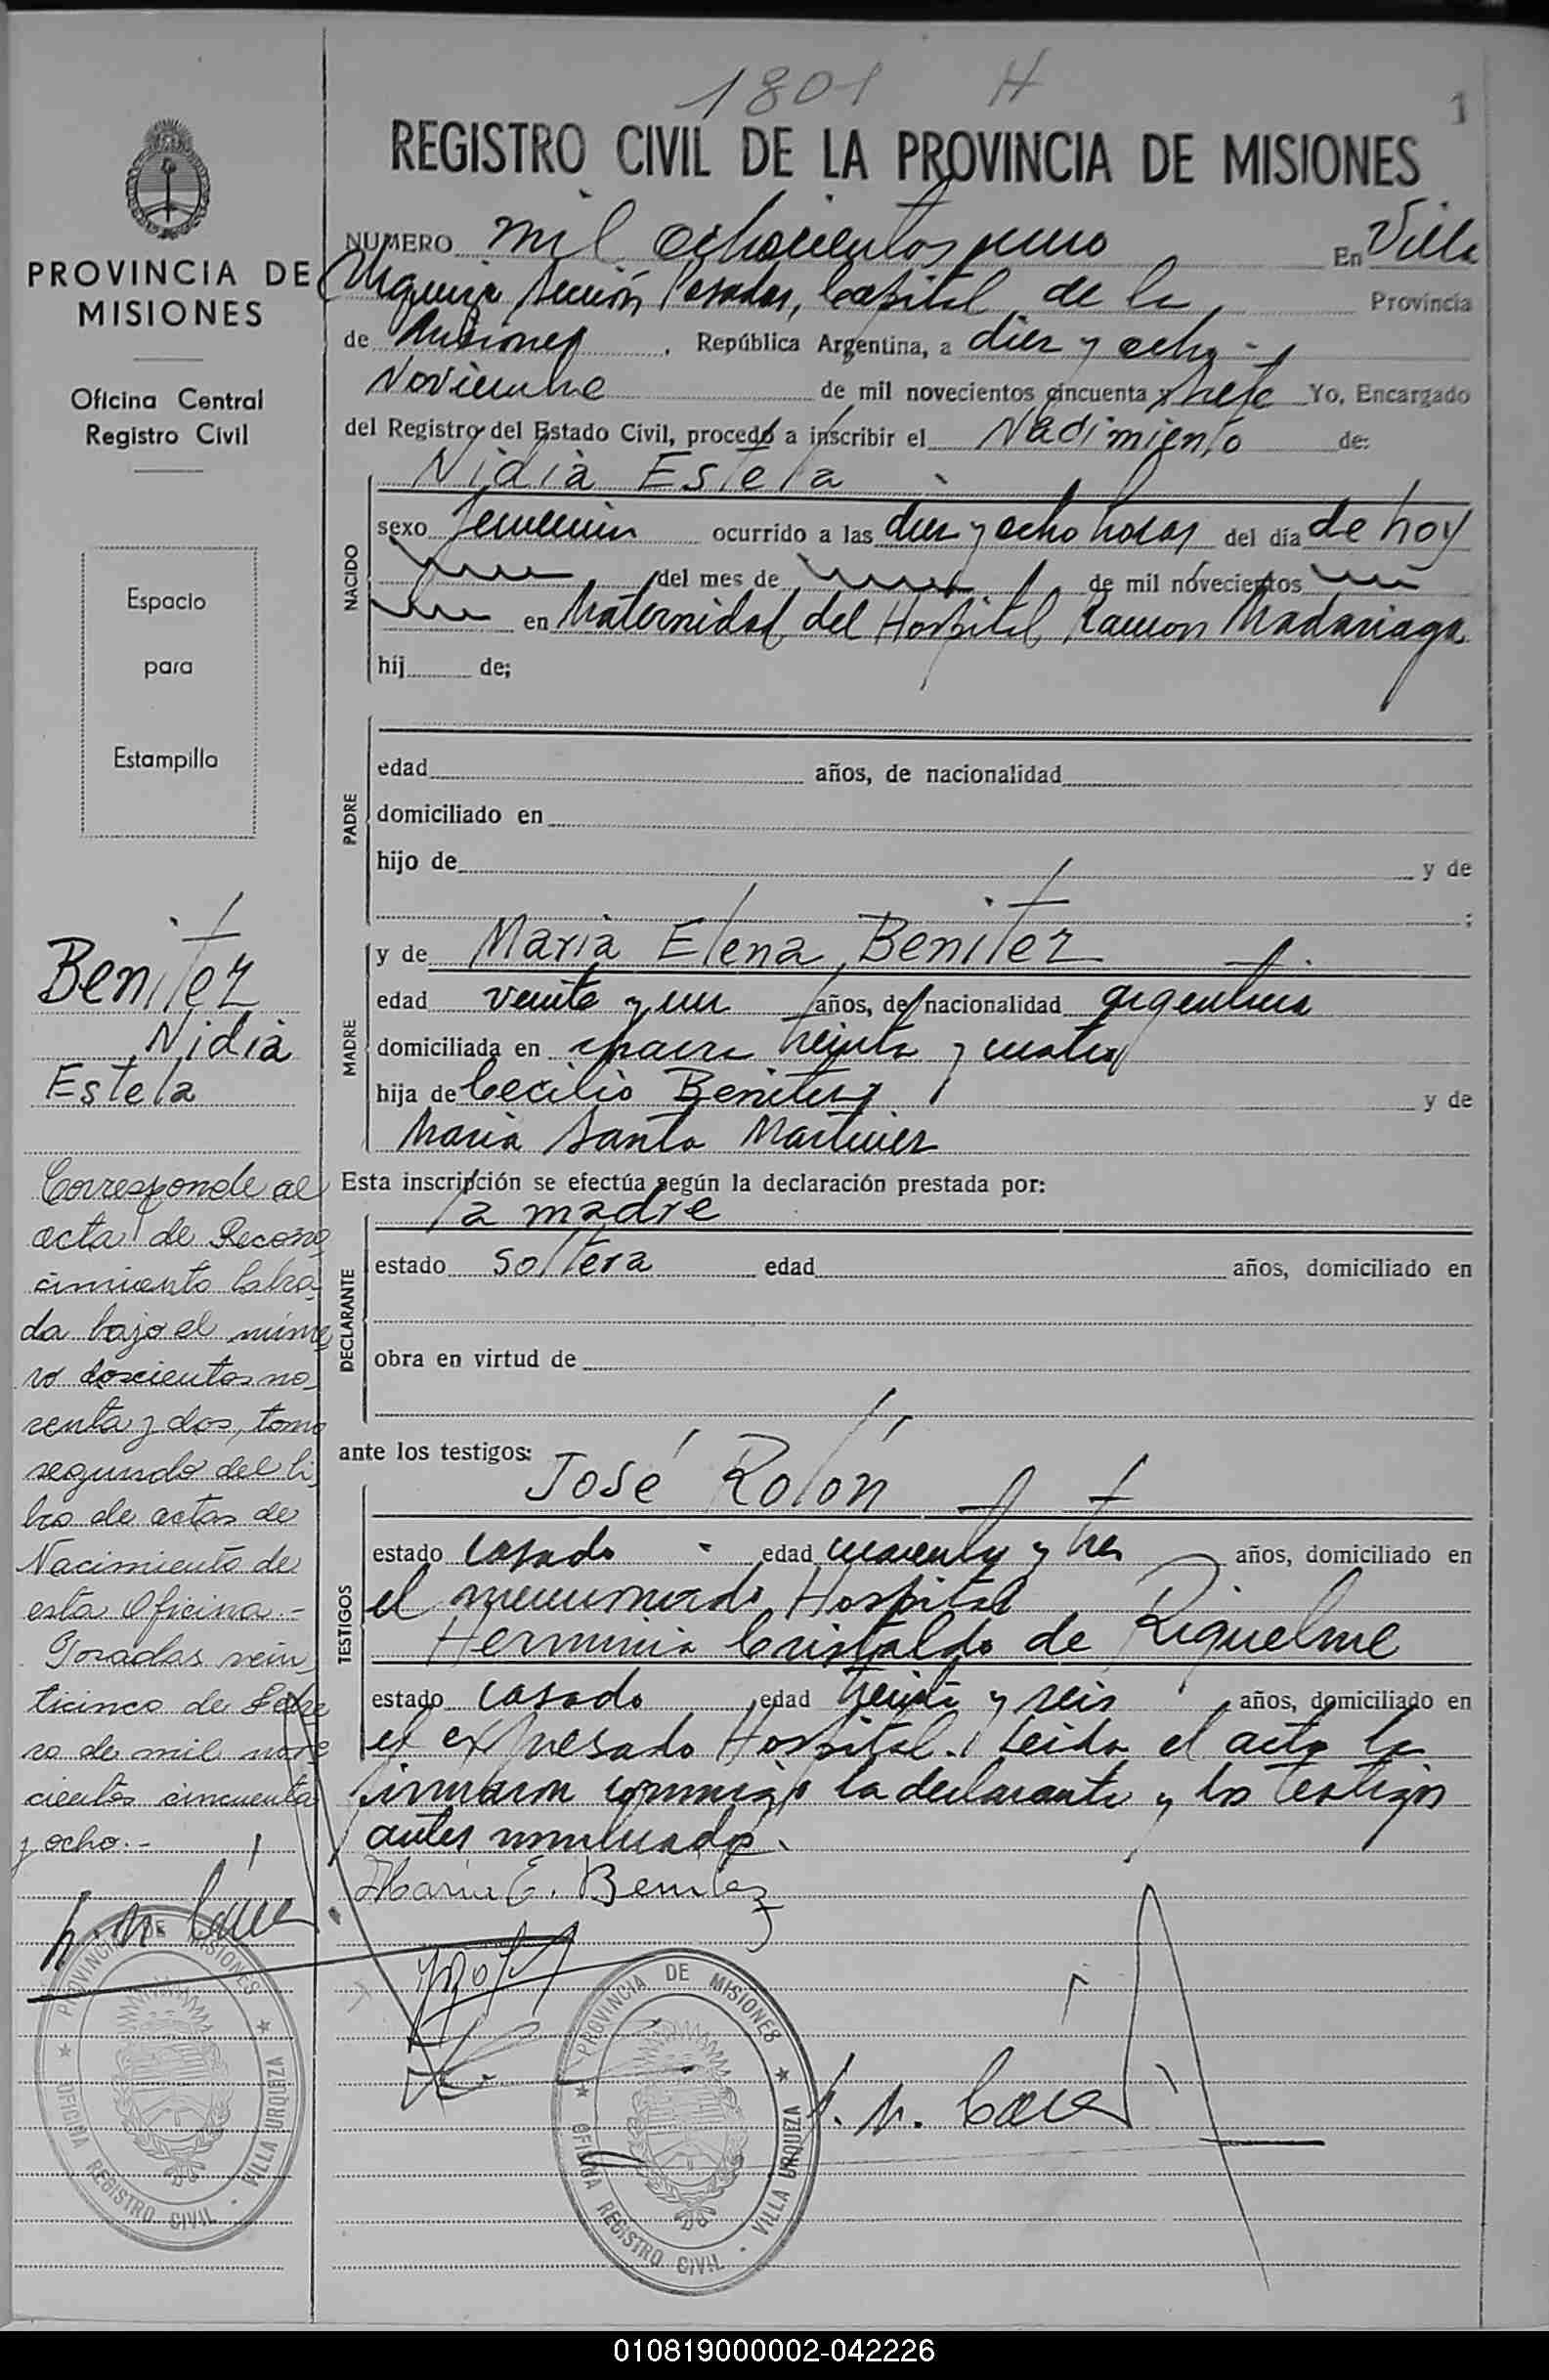 1801 H
1
REGISTRO CIVIL DE LA PROVINCIA DE MISIONES
NUMERO mil ochocientos uno En Villa
Urquiza Sección Posadas, Capital de la Provincia
de Misiones, República Argentina, a diez y ocho
Noviembre de mil novecientos cincuenta y siete Yo, Encargado
del Registro del Estado Civil, procedo a inscribir el Nacimiento de:
NACIDO
Nidia Estela
sexo femenino ocurrido a las diez y ocho horas del día de hoy
del mes de de mil novecientos
en Maternidad del Hospital Ramon Madariaga
hij de;
PADRE
edad años, de nacionalidad
domiciliado en
hijo de y de
;
MADRE
y de Maria Elena Benitez
edad veinte y un años, de nacionalidad argentina
domiciliada en chacra treinta y cuatro
hija de Cecilio Benitez y de
Maria Santa Martinez
Esta inscripción se efectúa según la declaración prestada por:
DECLARANTE
la madre
estado soltera edad años, domiciliado en
obra en virtud de
ante los testigos:
TESTIGOS
José Rolón
estado casado edad cuarenta y tres años, domiciliado en
el mencionado Hospital
Herminia Cristaldo de Riquelme
estado casado edad treinta y seis años, domiciliado en
el expresado Hospital. Leida el acta la
firmaron conmigo la declarante y los testigos
antes nombrados.
Maria E. Benitez
PROVINCIA DE MISIONES
OFICINA REGISTRO CIVIL - VILLA URQUIZA
PROVINCIA DE
MISIONES
Oficina Central
Registro Civil
Espacio
para
Estampilla
Benitez
Nidia
Estela
Corresponde al
acta de Recono
cimiento labra
da bajo el núme
ro doscientos no
venta y dos, tomo
segundo del li
bro de actas de
Nacimiento de
esta Oficina.-
Posadas vein
ticinco de Febre
ro de mil nove
cientos cincuenta
y ocho.-
PROVINCIA DE MISIONES
OFICINA REGISTRO CIVIL - VILLA URQUIZA
010819000002-042226